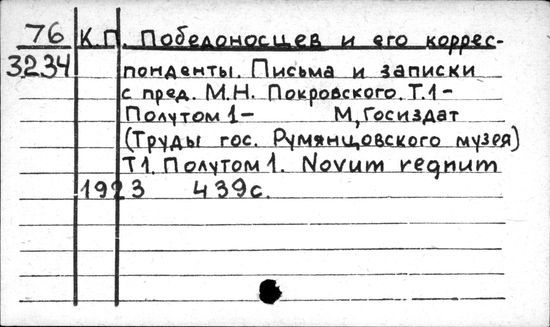 76 К.П. Победоносцев и его коррес-
3234 понденты. Письма и записки
с пред. М.Н. Покровского. Т.1-
Полутом 1- М, Госиздат
(Труды гос. Румянцовского музея)
Т1. Полутом 1. Novum regnum
1923 439с.